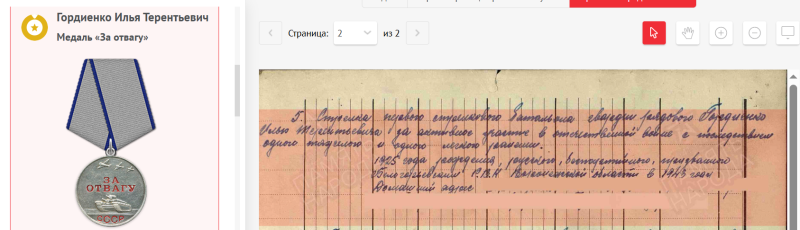 Гордиенко Илья Терентьевич
Медаль «За отвагу»
ЗА
ОТВАГУ
СССР
Страница:
2
из 2
5. Стрелка первого стрелкового батальона гвардии рядового Гордиенко
Илью Терентьевича за активное участие в отечественной войне с последствием
одного тяжелого и одного легкого ранения.
1925 года рождения, русского, беспартийного, призванного
Р.В.К области в 1943 году
Домашний адрес